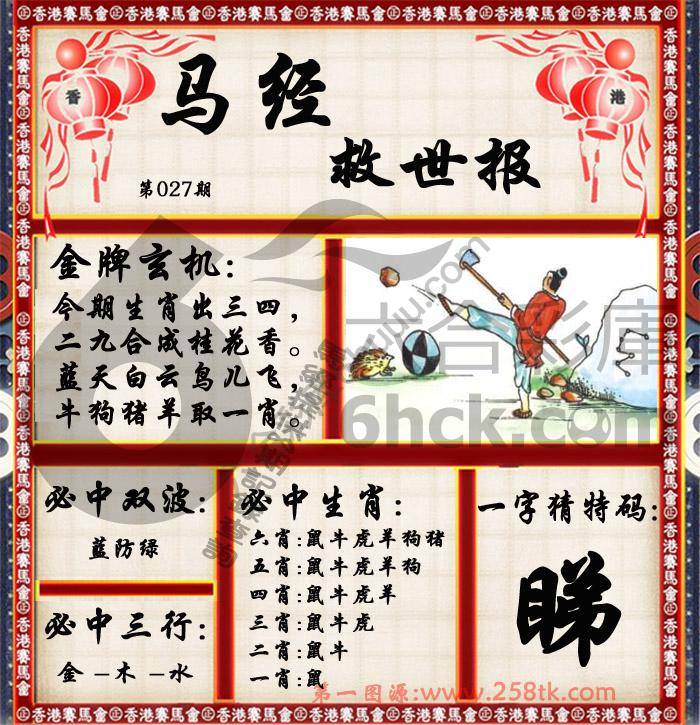 香港賽馬會
香
港
马经
救世报
第027期
金牌玄机:
今期生肖出三四,
二九合成桂花香。
蓝天白云鸟儿飞,
牛狗猪羊取一肖。
六合彩庫
6hck.com
必中双波:
藍防绿
必中三行:
金-木-水
必中生肖:
六肖:鼠牛虎羊狗猪
五肖:鼠牛虎羊狗
四肖:鼠牛虎羊
三肖:鼠牛虎
二肖:鼠牛
一肖:鼠
一字猜特码:
睇
第一图源:www.258tk.com